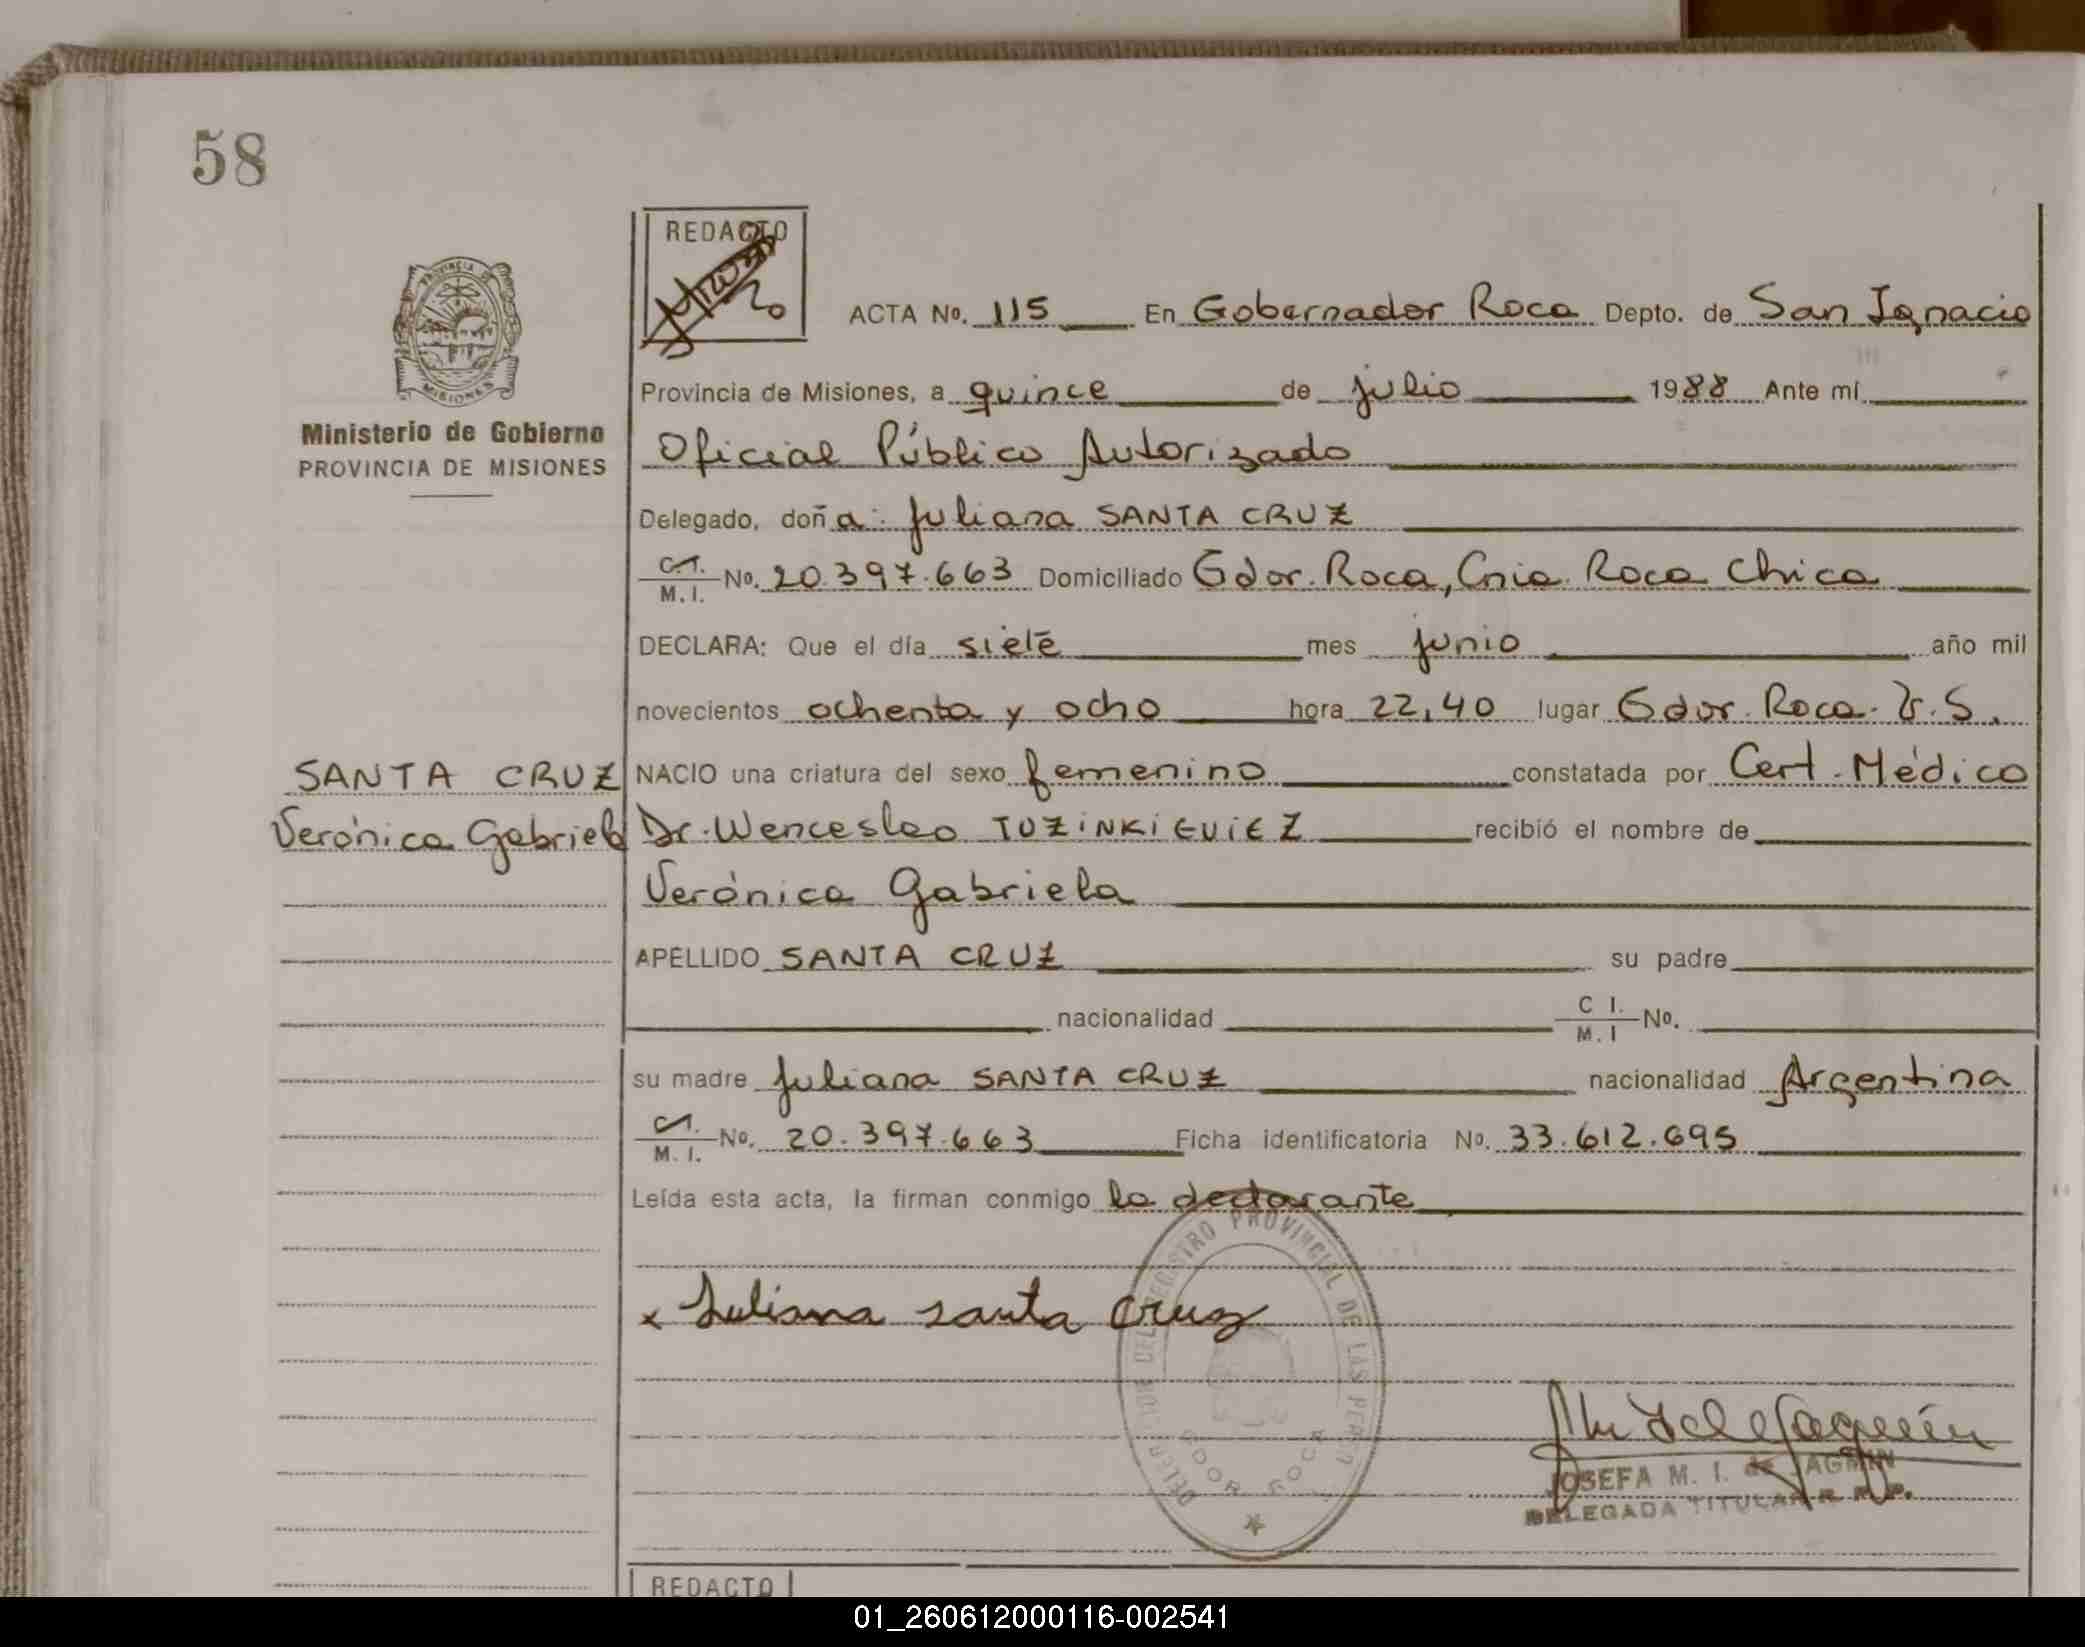 58
REDACTO
PROVINCIA DE
MISIONES
Ministerio de Gobierno
PROVINCIA DE MISIONES
ACTA No. 115 En Gobernador Roca Depto. de San Ignacio
Provincia de Misiones, a quince de julio 1988 Ante mí
Oficial Público Autorizado
Delegado, doña: Juliana SANTA CRUZ
C.I. M.I. No. 20.397.663 Domiciliado Gdor. Roca, Cnia. Roca Chica
DECLARA: Que el día siete mes junio año mil
novecientos ochenta y ocho hora 22,40 lugar Gdor. Roca. S.
SANTA CRUZ NACIO una criatura del sexo femenino constatada por Cert. Médico
Verónica Gabriela Dr. Wenceslao TUZINKIEVIEZ recibió el nombre de
Verónica Gabriela
APELLIDO SANTA CRUZ su padre
nacionalidad C I. M. I No.
su madre Juliana SANTA CRUZ nacionalidad Argentina
C.I. M. I. No. 20.397.663 Ficha identificatoria No. 33.612.695
Leída esta acta, la firman conmigo la declarante
x Juliana santa Cruz
DELEGACION DEL REGISTRO PROVINCIAL DE LAS PERSO
GDOR ROCA
JOSEFA M. I. de
DELEGADA TITULAR R. P.
REDACTO
01_260612000116-002541